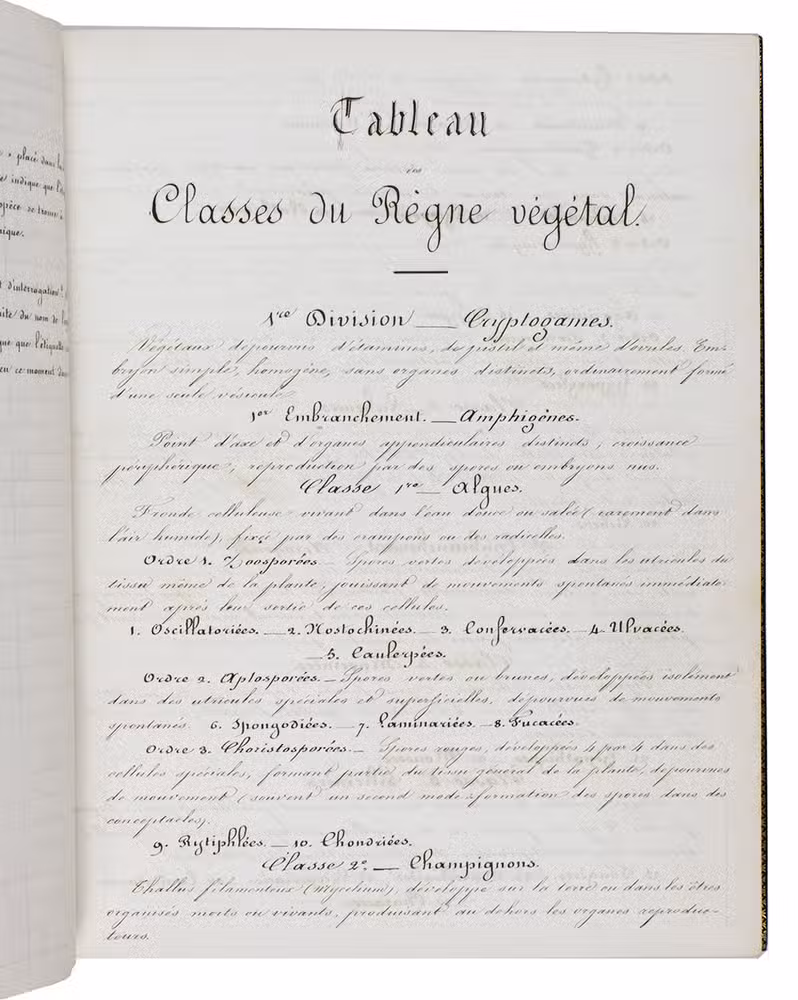 » placé dans la
indique que l'é
spèce se trouve
nique.
t d'interrogation
uite du nom de l
que que l'étiquette
en ce moment dan
Tableau
des
Classes du Règne végétal.
1re Division — Cryptogames.
Végétaux dépourvus d'étamines, de pistil et même d'ovules. Em-
bryon simple, homogène, sans organes distincts, ordinairement formé
d'une seule vésicule.
1er Embranchement. — Amphigènes.
Point d'axe et d'organes appendiculaires distincts, croissance
périphérique, reproduction par des spores ou embryons nus.
Classe 1re — Algues.
Fronde celluleuse vivant dans l'eau douce ou salée (rarement dans
l'air humide), fixée par des crampons ou des radicelles.
Ordre 1. Zoosporées. — Spores vertes développées dans les utricules du
tissu même de la plante, jouissant de mouvements spontanés immédiate-
ment après leur sortie de ces cellules.
1. Oscillatoriées. — 2. Nostochinées. — 3. Confervacées. — 4. Ulvacées.
— 5. Caulerpées.
Ordre 2. Aplosporées. — Spores vertes ou brunes, développées isolément
dans des utricules spéciales et superficielles, dépourvues de mouvements
spontanés. 6. Spongodiées. — 7. Laminariées. — 8. Fucacées.
Ordre 3. Choristosporées. — Spores rouges, développées 4 par 4 dans des
cellules spéciales, formant partie du tissu général de la plante, dépourvues
de mouvement (souvent un second mode formation des spores dans des
conceptacles).
9. Rytiphlées. — 10. Chondriées.
Classe 2e. — Champignons.
Thallus filamenteux (Mycelium), développé sur la terre ou dans les êtres
organisés morts ou vivants, produisant au dehors les organes reproduc-
teurs.